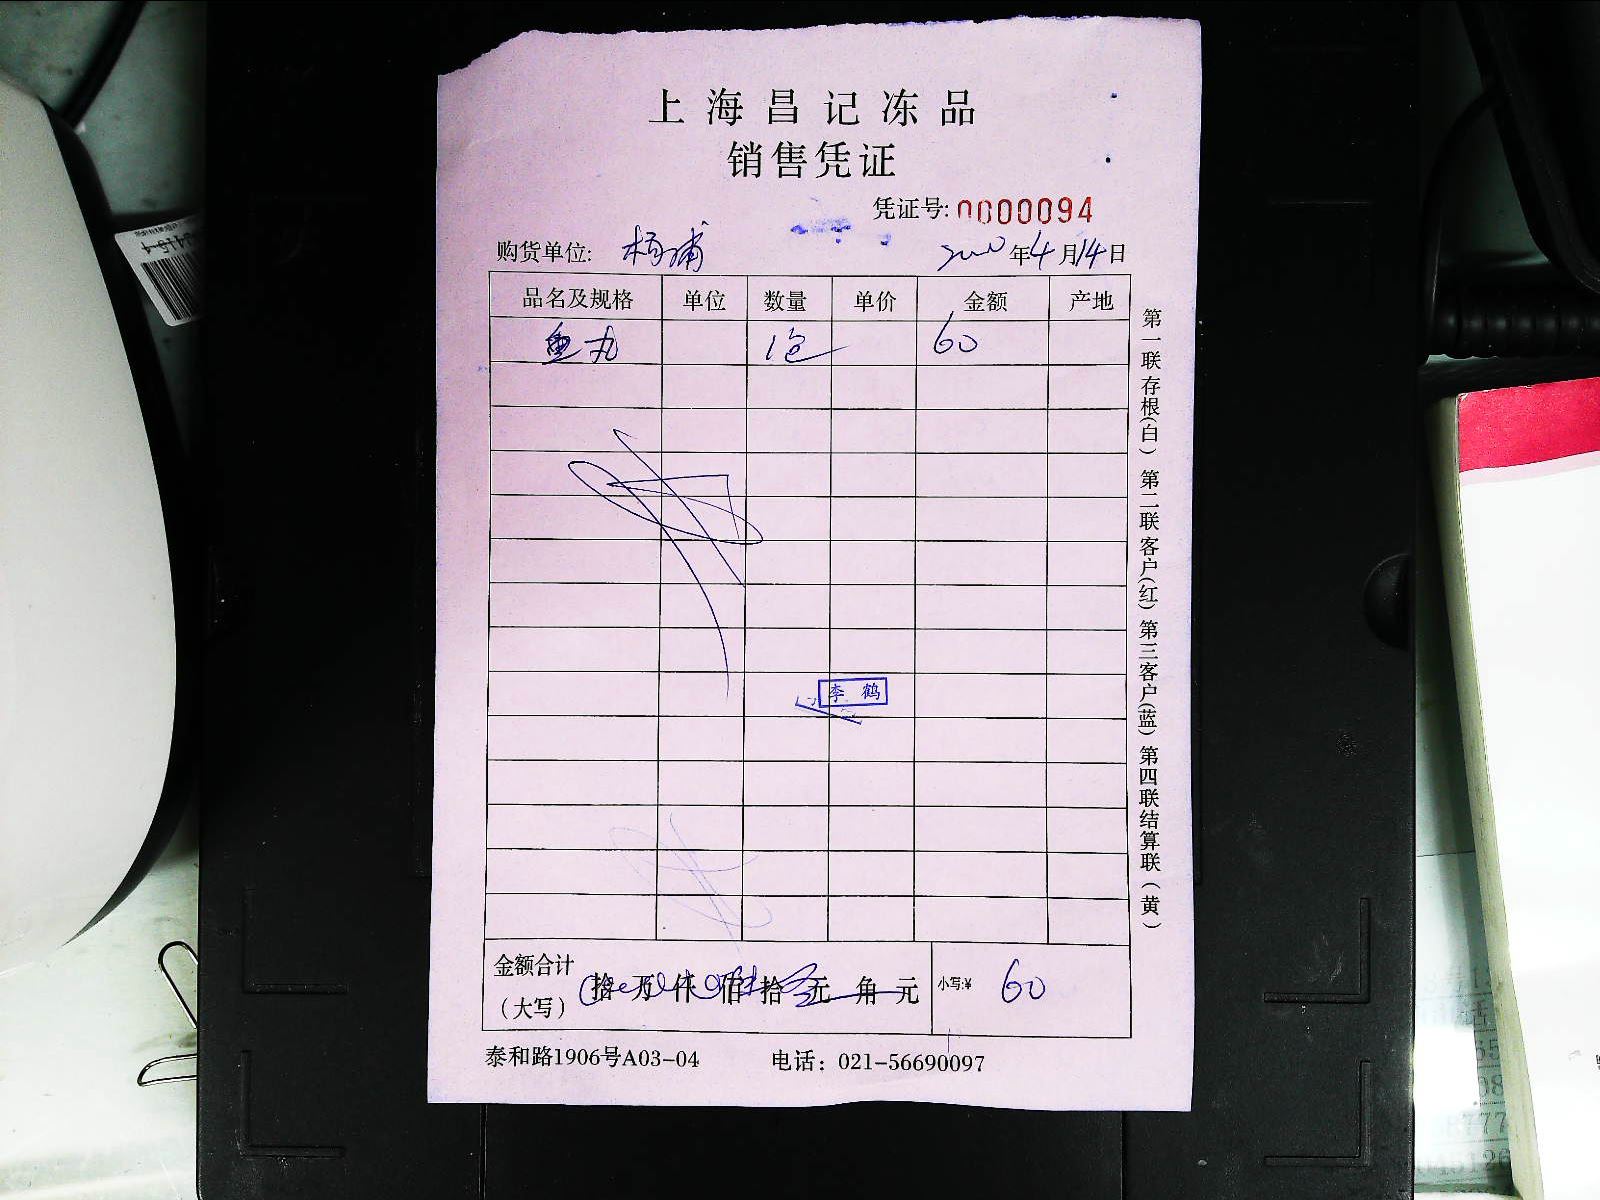 上海昌记冻品
销售凭证
凭证号: 0000094
购货单位: 杨浦 年4月14日
品名及规格 单位 数量 单价 金额 产地
鱼丸 1包 60
李鹤
金额合计
(大写) 拾 万 仟 佰 拾 元 角 元 小写:¥ 60
泰和路1906号A03-04 电话: 021-56690097
第一联存根(白) 第二联客户(红) 第三客户(蓝) 第四联结算联(黄)